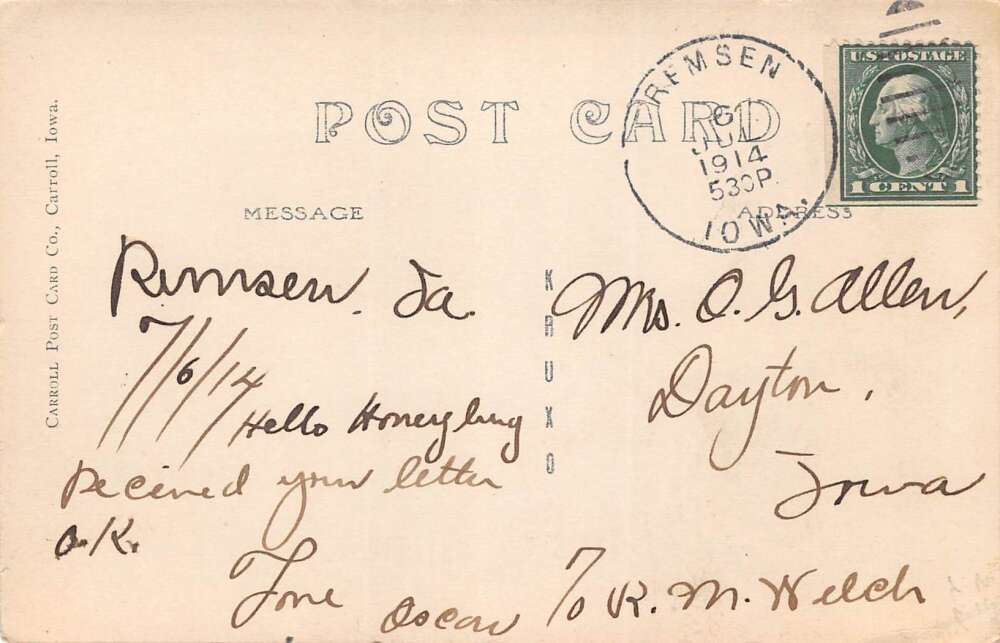 POST CARD
MESSAGE
ADDRESS
CARROLL POST CARD CO., Carroll, Iowa.
KRUXO
REMSEN
6
JUL
1914
530P
IOWA.
U.S. POSTAGE
1 CENT 1
Remsen, Ia.
7/6/14
Hello Honeybug
Received your letter
O.K.
Love
Oscar
Mrs. O. G. Allen,
Dayton,
Iowa
℅ R. M. Welch